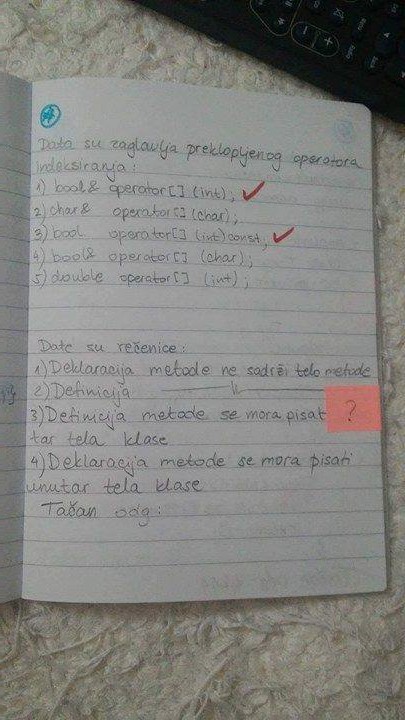 Data su zaglavlja preklopljenog operatora
indeksiranja:
1) bool& operator[] (int);
2) char& operator[] (char);
3) bool operator[] (int) const;
4) bool& operator[] (char);
5) double operator[] (int);
Date su rečenice:
1) Deklaracija metode ne sadrži telo metode
2) Definicija —— 11 ——
3) Definicija metode se mora pisat ?
tar tela klase
4) Deklaracija metode se mora pisati
unutar tela klase
Tačan odg: